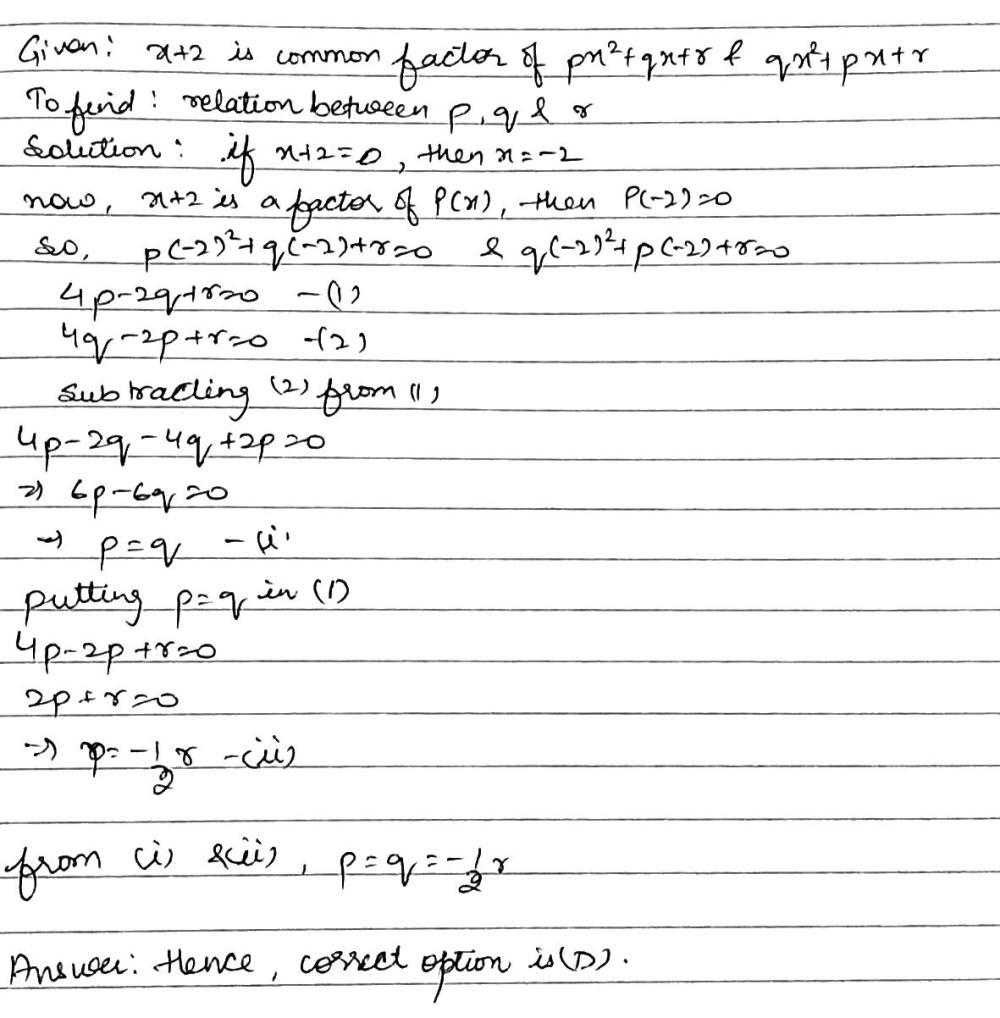 Given: x+2 is common factor of px²+qx+r & qx²+px+r
To find: relation between p, q & r
Solution: if x+2=0, then x=-2
now, x+2 is a factor of P(x), then P(-2)=0
So, p(-2)²+q(-2)+r=0 & q(-2)²+p(-2)+r=0
4p-2q+r=0 -(1)
4q-2p+r=0 -(2)
Subtracting (2) from (1)
4p-2q-4q+2p=0
⇒ 6p-6q=0
→ p=q -(i)
putting p=q in (1)
4p-2p+r=0
2p+r=0
⇒ p=-1/2 r -(ii)
from (i) &(ii), p=q=-1/2 r
Answer: Hence, correct option is (D).